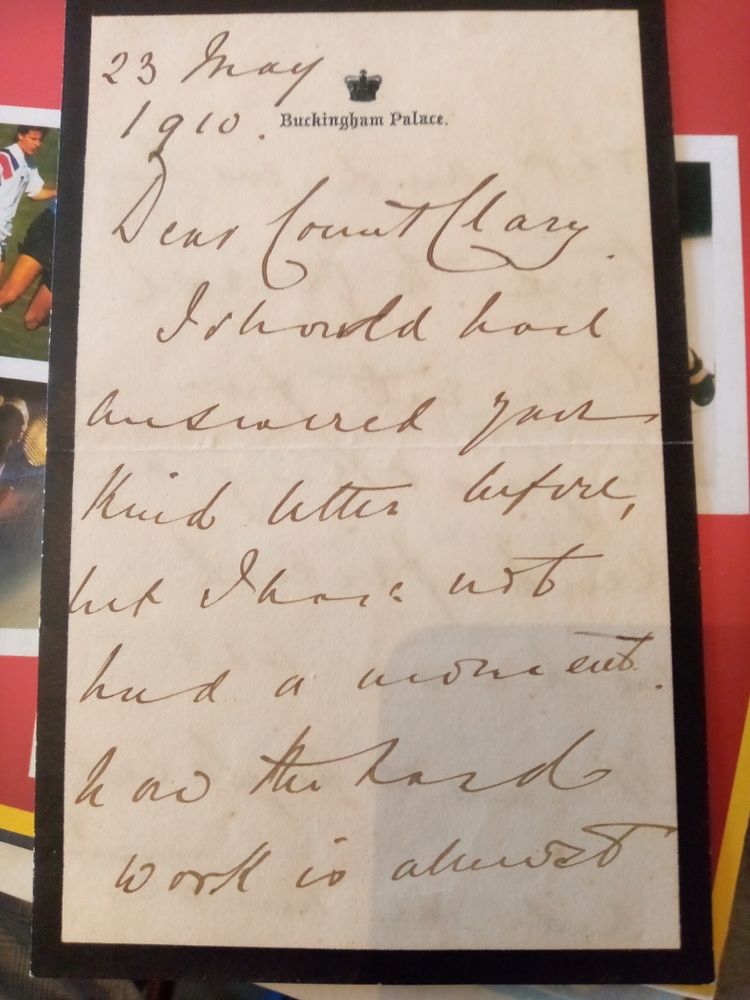 23 May
1910.
Buckingham Palace.
Dear Count Clary.
I should have
answered your
kind letter before,
but I have not
had a moment.
now the hard
work is almost